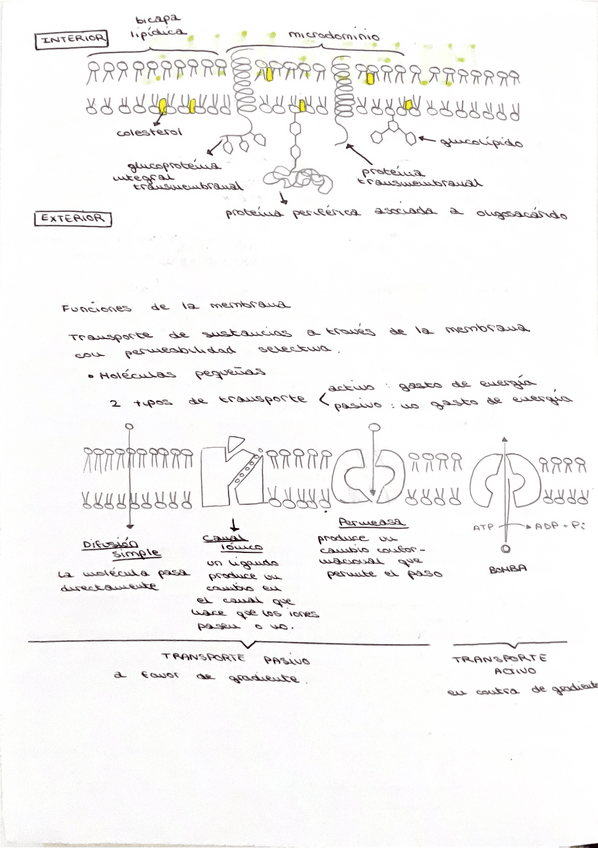 INTERIOR
bicapa
lipídica
microdominio
colesterol
glucoproteína
integral
transmembranal
proteína
transmembranal
glucolípido
EXTERIOR
proteína periférica asociada a oligosacárido
Funciones de la membrana
Transporte de sustancias a través de la membrana
con permeabilidad selectiva.
• Moléculas pequeñas
2 tipos de transporte < activo : gasto de energía
pasivo : no gasto de energía
Difusión
simple
La molécula pasa
directamente
Canal
iónico
un ligando
produce un
cambio en
el canal que
hace que los iones
pasen o no.
Permeasa
produce un
cambio confor-
macional que
permite el paso
ATP → ADP + Pi
BOMBA
TRANSPORTE PASIVO
a favor de gradiente.
TRANSPORTE
ACTIVO
en contra de gradiente